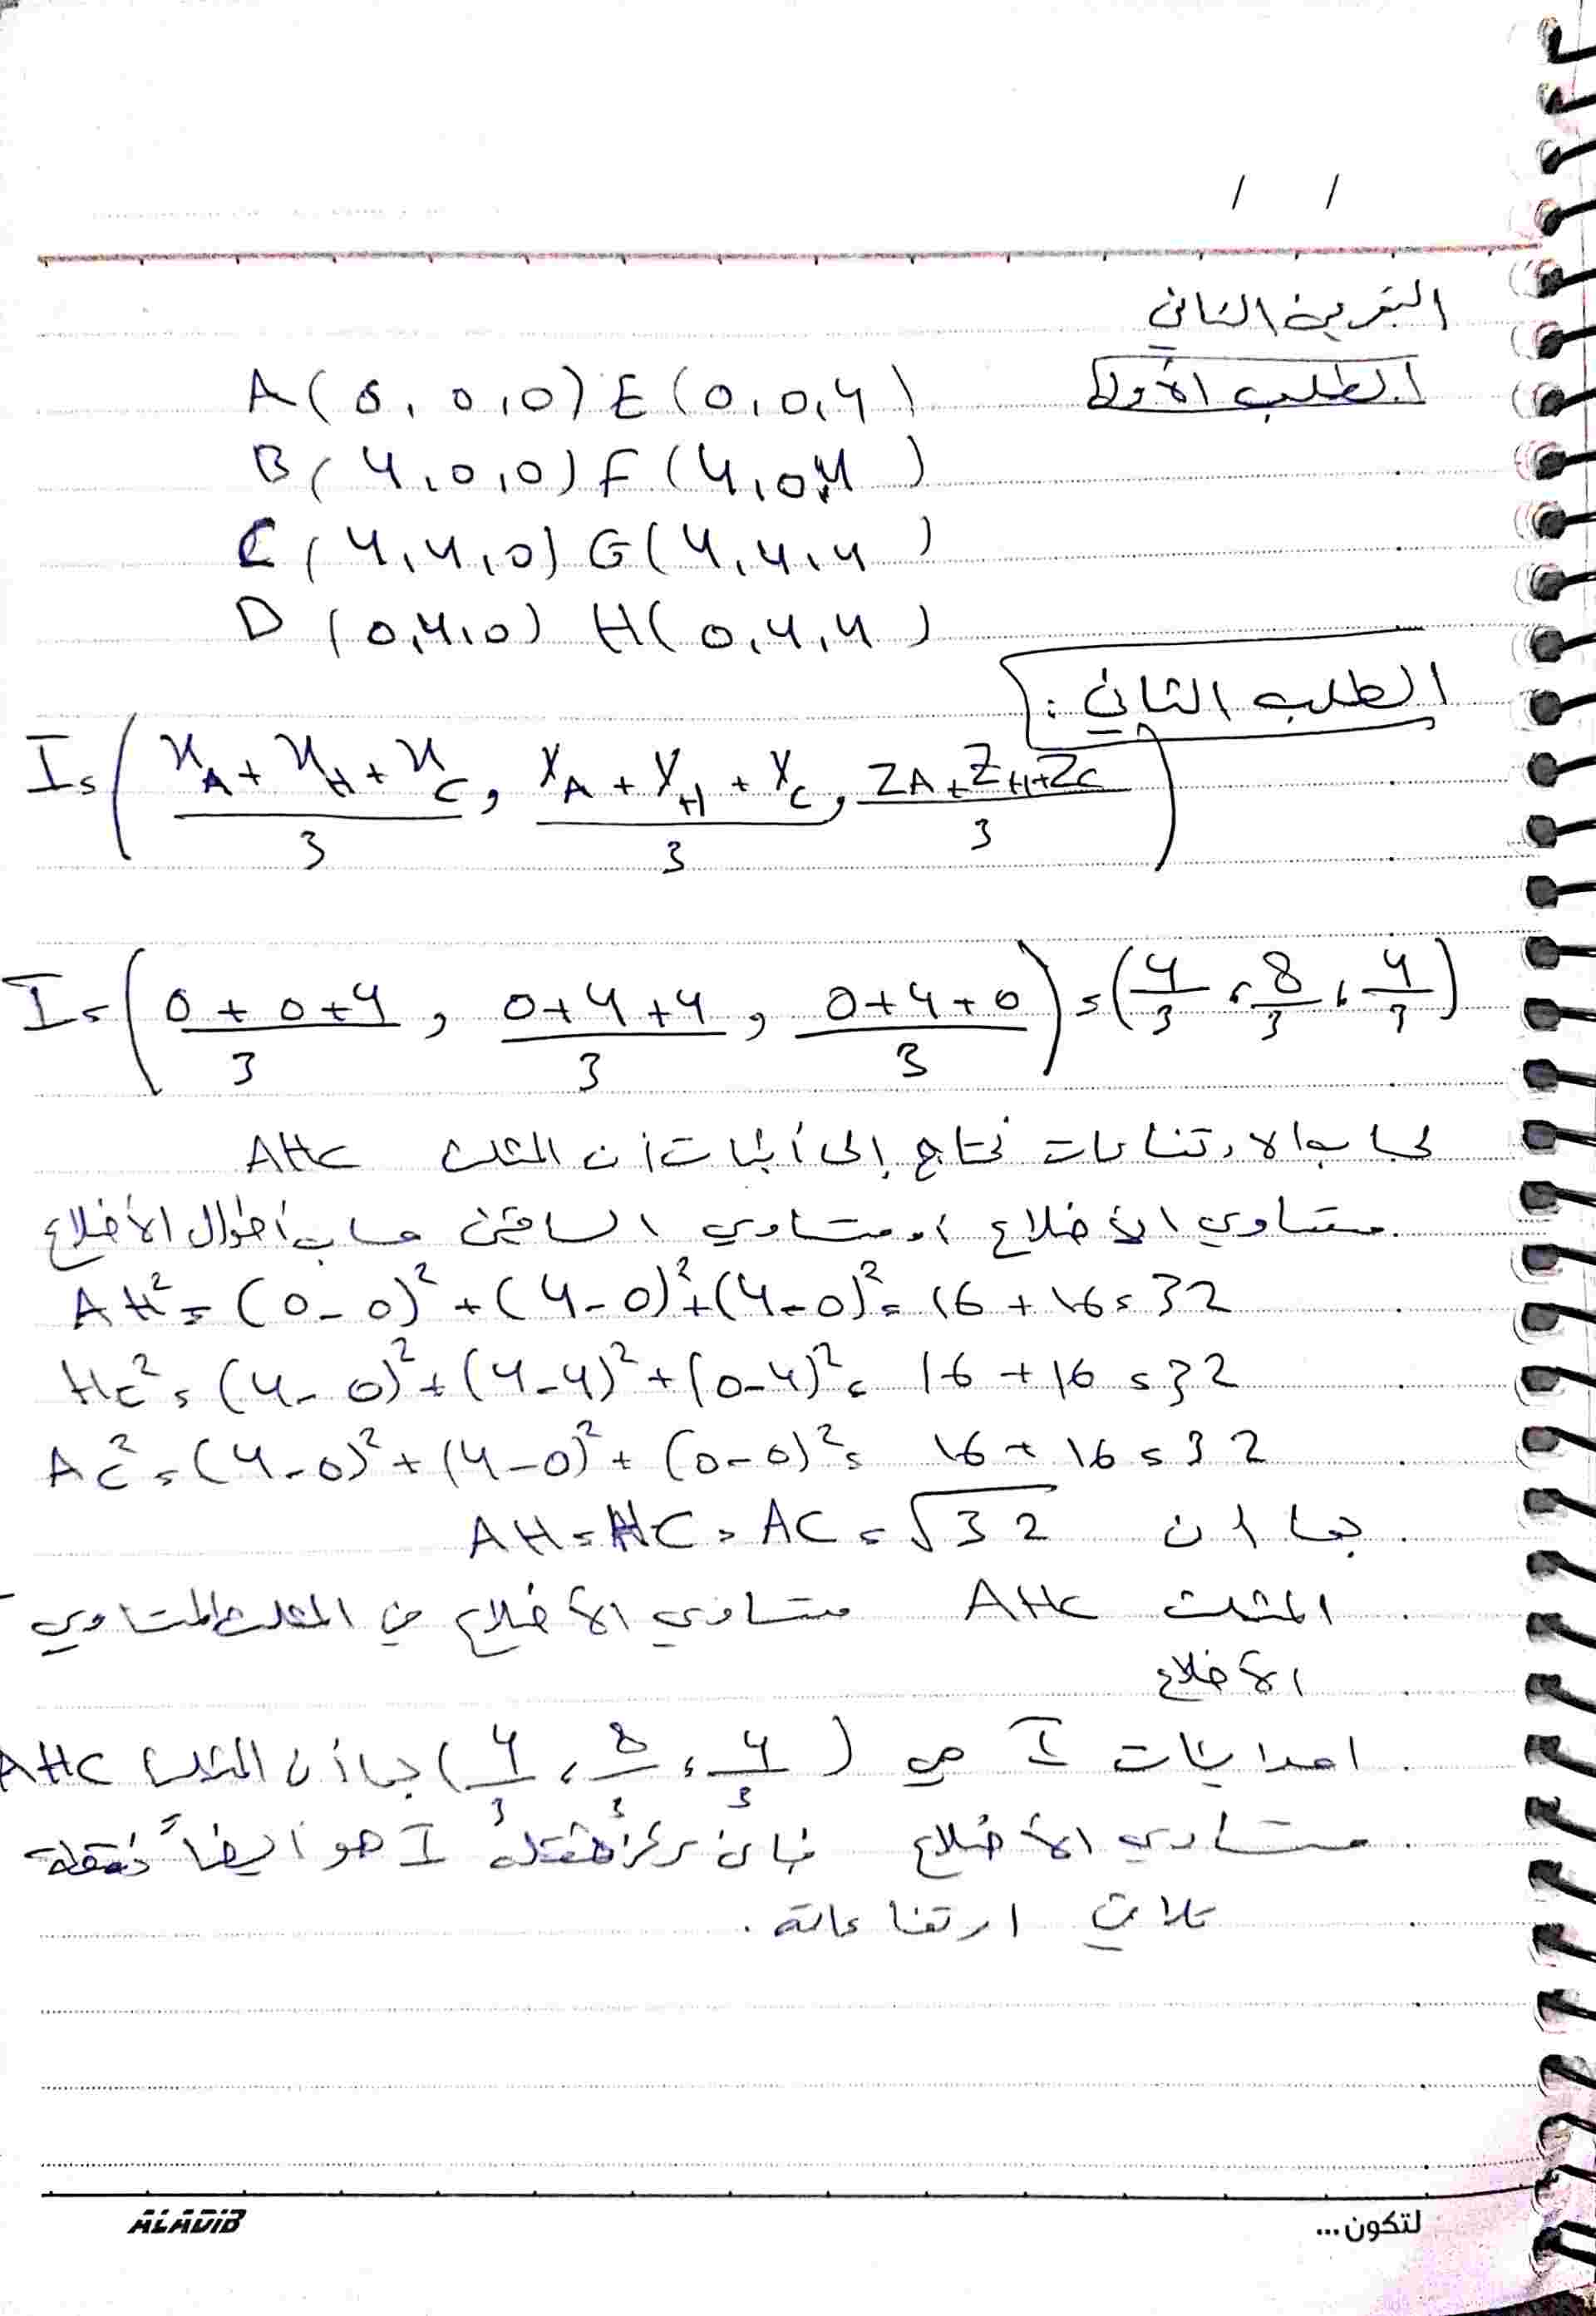 / /
التمرين الثاني
الطلب الأول
A(0,0,0) E(0,0,4)
B(4,0,0) F(4,0,4)
C(4,4,0) G(4,4,4)
D(0,4,0) H(0,4,4)
الطلب الثاني:
I = ( (x_A + x_H + x_C)/3 , (y_A + y_H + y_C)/3 , (z_A + z_H + z_C)/3 )
I = ( (0+0+4)/3 , (0+4+4)/3 , (0+4+0)/3 ) = (4/3 , 8/3 , 4/3)
لحساب الارتفاعات نحتاج إلى أثبات أن المثلث AHC
متساوي الأضلاع أو متساوي الساقين حساب أطوال الأضلاع
AH² = (0-0)² + (4-0)² + (4-0)² = 16 + 16 = 32
HC² = (4-0)² + (4-4)² + (0-4)² = 16 + 16 = 32
AC² = (4-0)² + (4-0)² + (0-0)² = 16 + 16 = 32
بما ان AH = HC = AC = √32
المثلث AHC متساوي الأضلاع في المثلث المتساوي
الأضلاع
احداثيات I هي (4/3 , 8/3 , 4/3) بما أن المثلث AHC
متساوي الأضلاع فإن مركز ثقله I هو أيضاً نقطة
تلاقي ارتفاعاته .
ALADIB
لتكون...